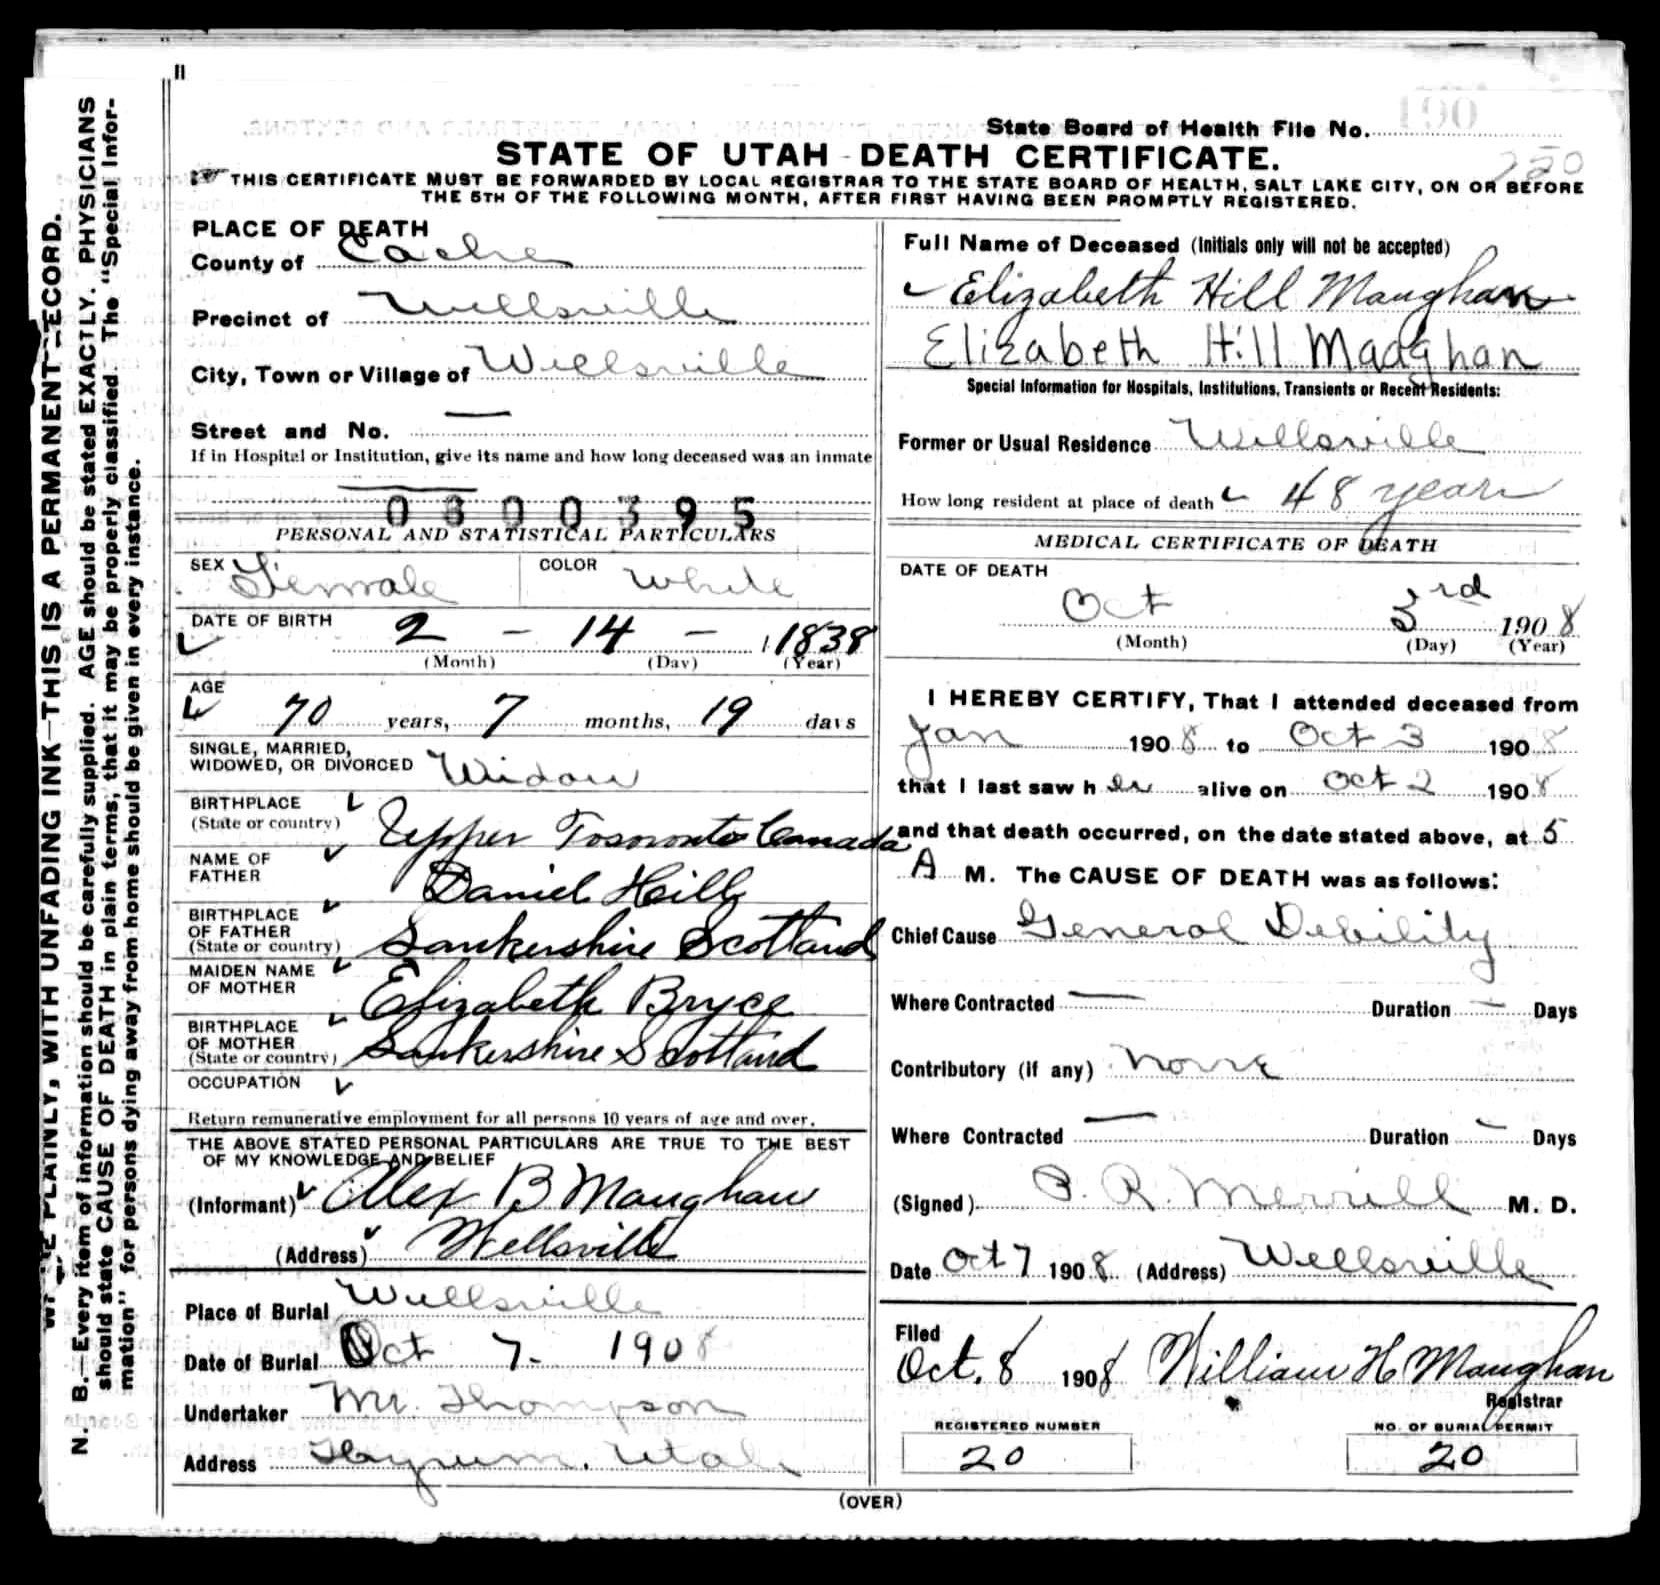 State Board of Health File No. 190
STATE OF UTAH - DEATH CERTIFICATE.
THIS CERTIFICATE MUST BE FORWARDED BY LOCAL REGISTRAR TO THE STATE BOARD OF HEALTH, SALT LAKE CITY, ON OR BEFORE
THE 5TH OF THE FOLLOWING MONTH, AFTER FIRST HAVING BEEN PROMPTLY REGISTERED.
N. B.—Every item of information should be carefully supplied. AGE should be stated EXACTLY. PHYSICIANS
should state CAUSE OF DEATH in plain terms, that it may be properly classified. The "Special Infor-
mation" for persons dying away from home should be given in every instance.
PLAINLY, WITH UNFADING INK—THIS IS A PERMANENT RECORD.
PLACE OF DEATH
County of Cache
Precinct of Wellsville
City, Town or Village of Wellsville
Street and No. —
If in Hospital or Institution, give its name and how long deceased was an inmate
—
0800395
PERSONAL AND STATISTICAL PARTICULARS
SEX Female COLOR White
DATE OF BIRTH 2 - 14 - 1838
(Month) (Day) (Year)
AGE 70 years, 7 months, 19 days
SINGLE, MARRIED,
WIDOWED, OR DIVORCED Widow
BIRTHPLACE
(State or country) Upper Tosoronto Canada
NAME OF
FATHER Daniel Hill
BIRTHPLACE
OF FATHER
(State or country) Lankershire Scotland
MAIDEN NAME
OF MOTHER Elizabeth Bryce
BIRTHPLACE
OF MOTHER
(State or country) Lankershire Scotland
OCCUPATION
Return remunerative employment for all persons 10 years of age and over.
THE ABOVE STATED PERSONAL PARTICULARS ARE TRUE TO THE BEST
OF MY KNOWLEDGE AND BELIEF
(Informant) Alex B Maughan
(Address) Wellsville
Place of Burial Wellsville
Date of Burial Oct 7- 1908
Undertaker Mr. Thompson
Address Hyrum. Utah
Full Name of Deceased (Initials only will not be accepted)
Elizabeth Hill Maughan
Elizabeth Hill Maughan
Special Information for Hospitals, Institutions, Transients or Recent Residents:
Former or Usual Residence Wellsville
How long resident at place of death 48 years
MEDICAL CERTIFICATE OF DEATH
DATE OF DEATH
Oct 3rd 1908
(Month) (Day) (Year)
I HEREBY CERTIFY, That I attended deceased from
Jan 1908 to Oct 3 1908
that I last saw her alive on Oct 2 1908
and that death occurred, on the date stated above, at 5
A M. The CAUSE OF DEATH was as follows:
Chief Cause General Debility
Where Contracted — Duration — Days
Contributory (if any) None
Where Contracted — Duration — Days
(Signed) P. R. Merrill M. D.
Date Oct 7 1908 (Address) Wellsville
Filed
Oct. 8 1908 William H Maughan
Registrar
REGISTERED NUMBER NO. OF BURIAL PERMIT
20 20
(OVER)